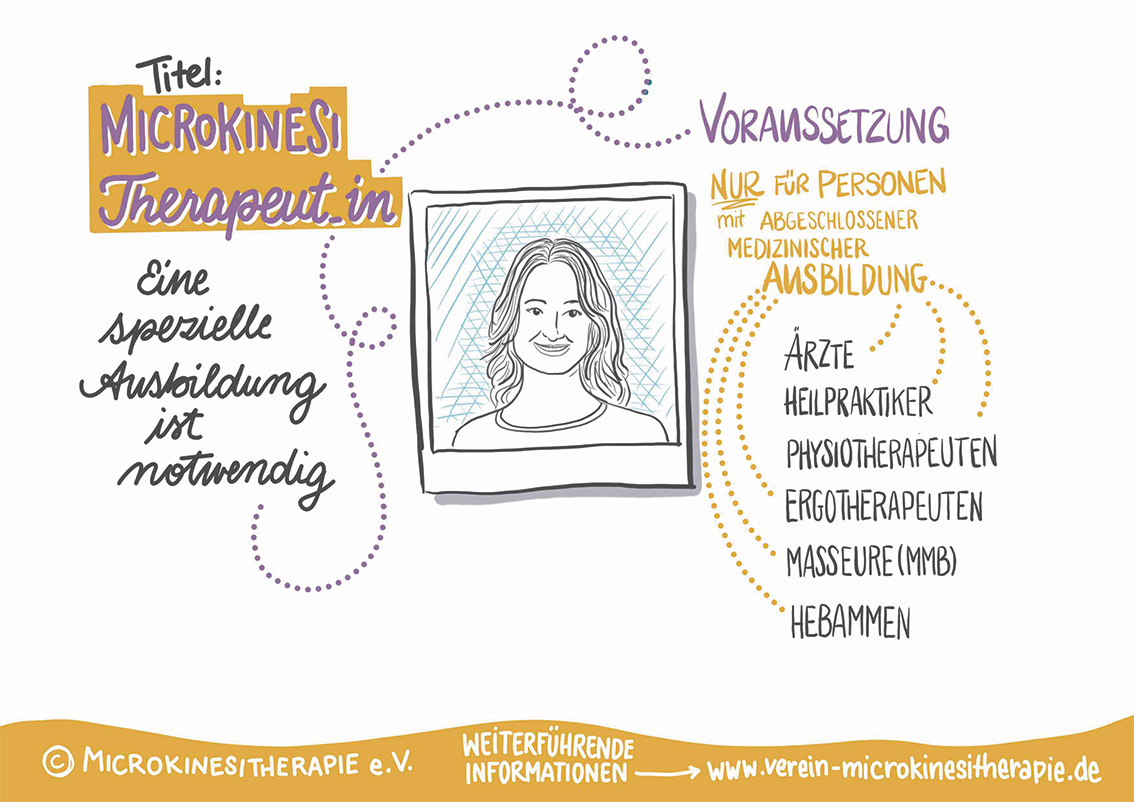 Titel:
MICROKINESI
Therapeut_in
Eine
spezielle
Ausbildung
ist
notwendig
VORAUSSETZUNG
NUR FÜR PERSONEN
mit ABGESCHLOSSENER
MEDIZINISCHER
AUSBILDUNG
ÄRZTE
HEILPRAKTIKER
PHYSIOTHERAPEUTEN
ERGOTHERAPEUTEN
MASSEURE (MMB)
HEBAMMEN
© MICROKINESITHERAPIE e.V.
WEITERFÜHRENDE
INFORMATIONEN → www.verein-microkinesitherapie.de